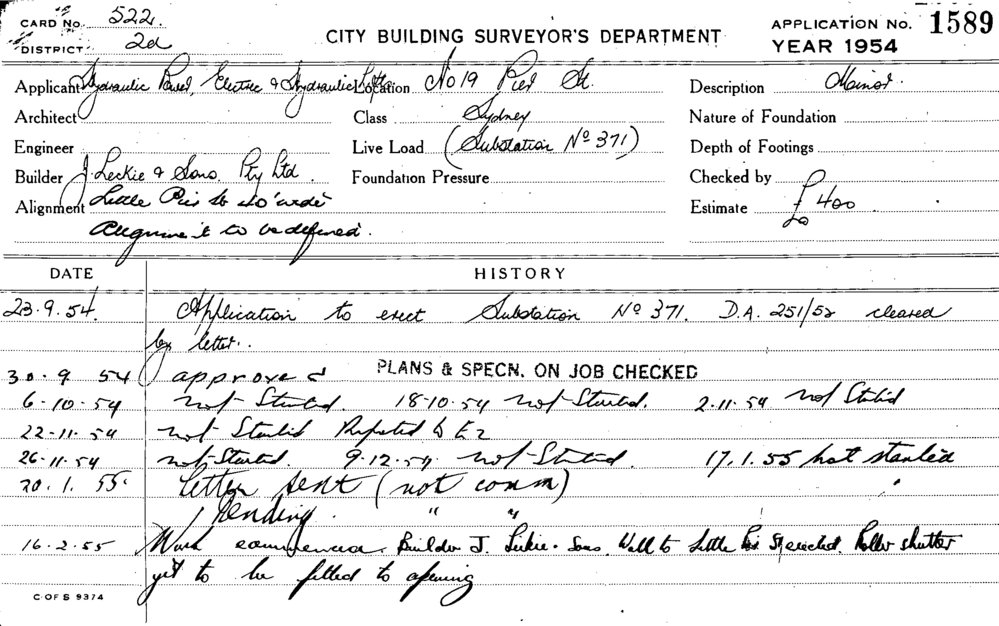 CARD No. 522.
DISTRICT. 2d
CITY BUILDING SURVEYOR'S DEPARTMENT
APPLICATION No. 1589
YEAR 1954
Applicant Hydraulic Power, Electric & Hydraulic Lifts
Location No 19 Pier St.
Description Minor.
Architect
Class Sydney
Nature of Foundation
Engineer
Live Load (Substation No 371)
Depth of Footings
Builder J. Leckie & Sons, Pty Ltd.
Foundation Pressure
Checked by
Alignment Little Pier St
Estimate £400
Alignment to be defined.
DATE HISTORY
23.9.54. Application to erect Substation No 371. D.A. 251/52 cleared
by letter.
30.9 54 approved PLANS & SPECN. ON JOB CHECKED
6-10-54 not Started. 18-10-54 not Started. 2-11-54 not Started
22-11-54 not Started Reported to
26-11-54 not Started. 9-12-54 not Started. 17.1.55 not started
20.1.55. Letter sent (not comm)
Pending. " "
16-2-55 Work commenced. Builder J. Leckie & Sons. Wall to Little Pier St erected. Roller shutter
yet to be fitted to opening
C OF S 9374